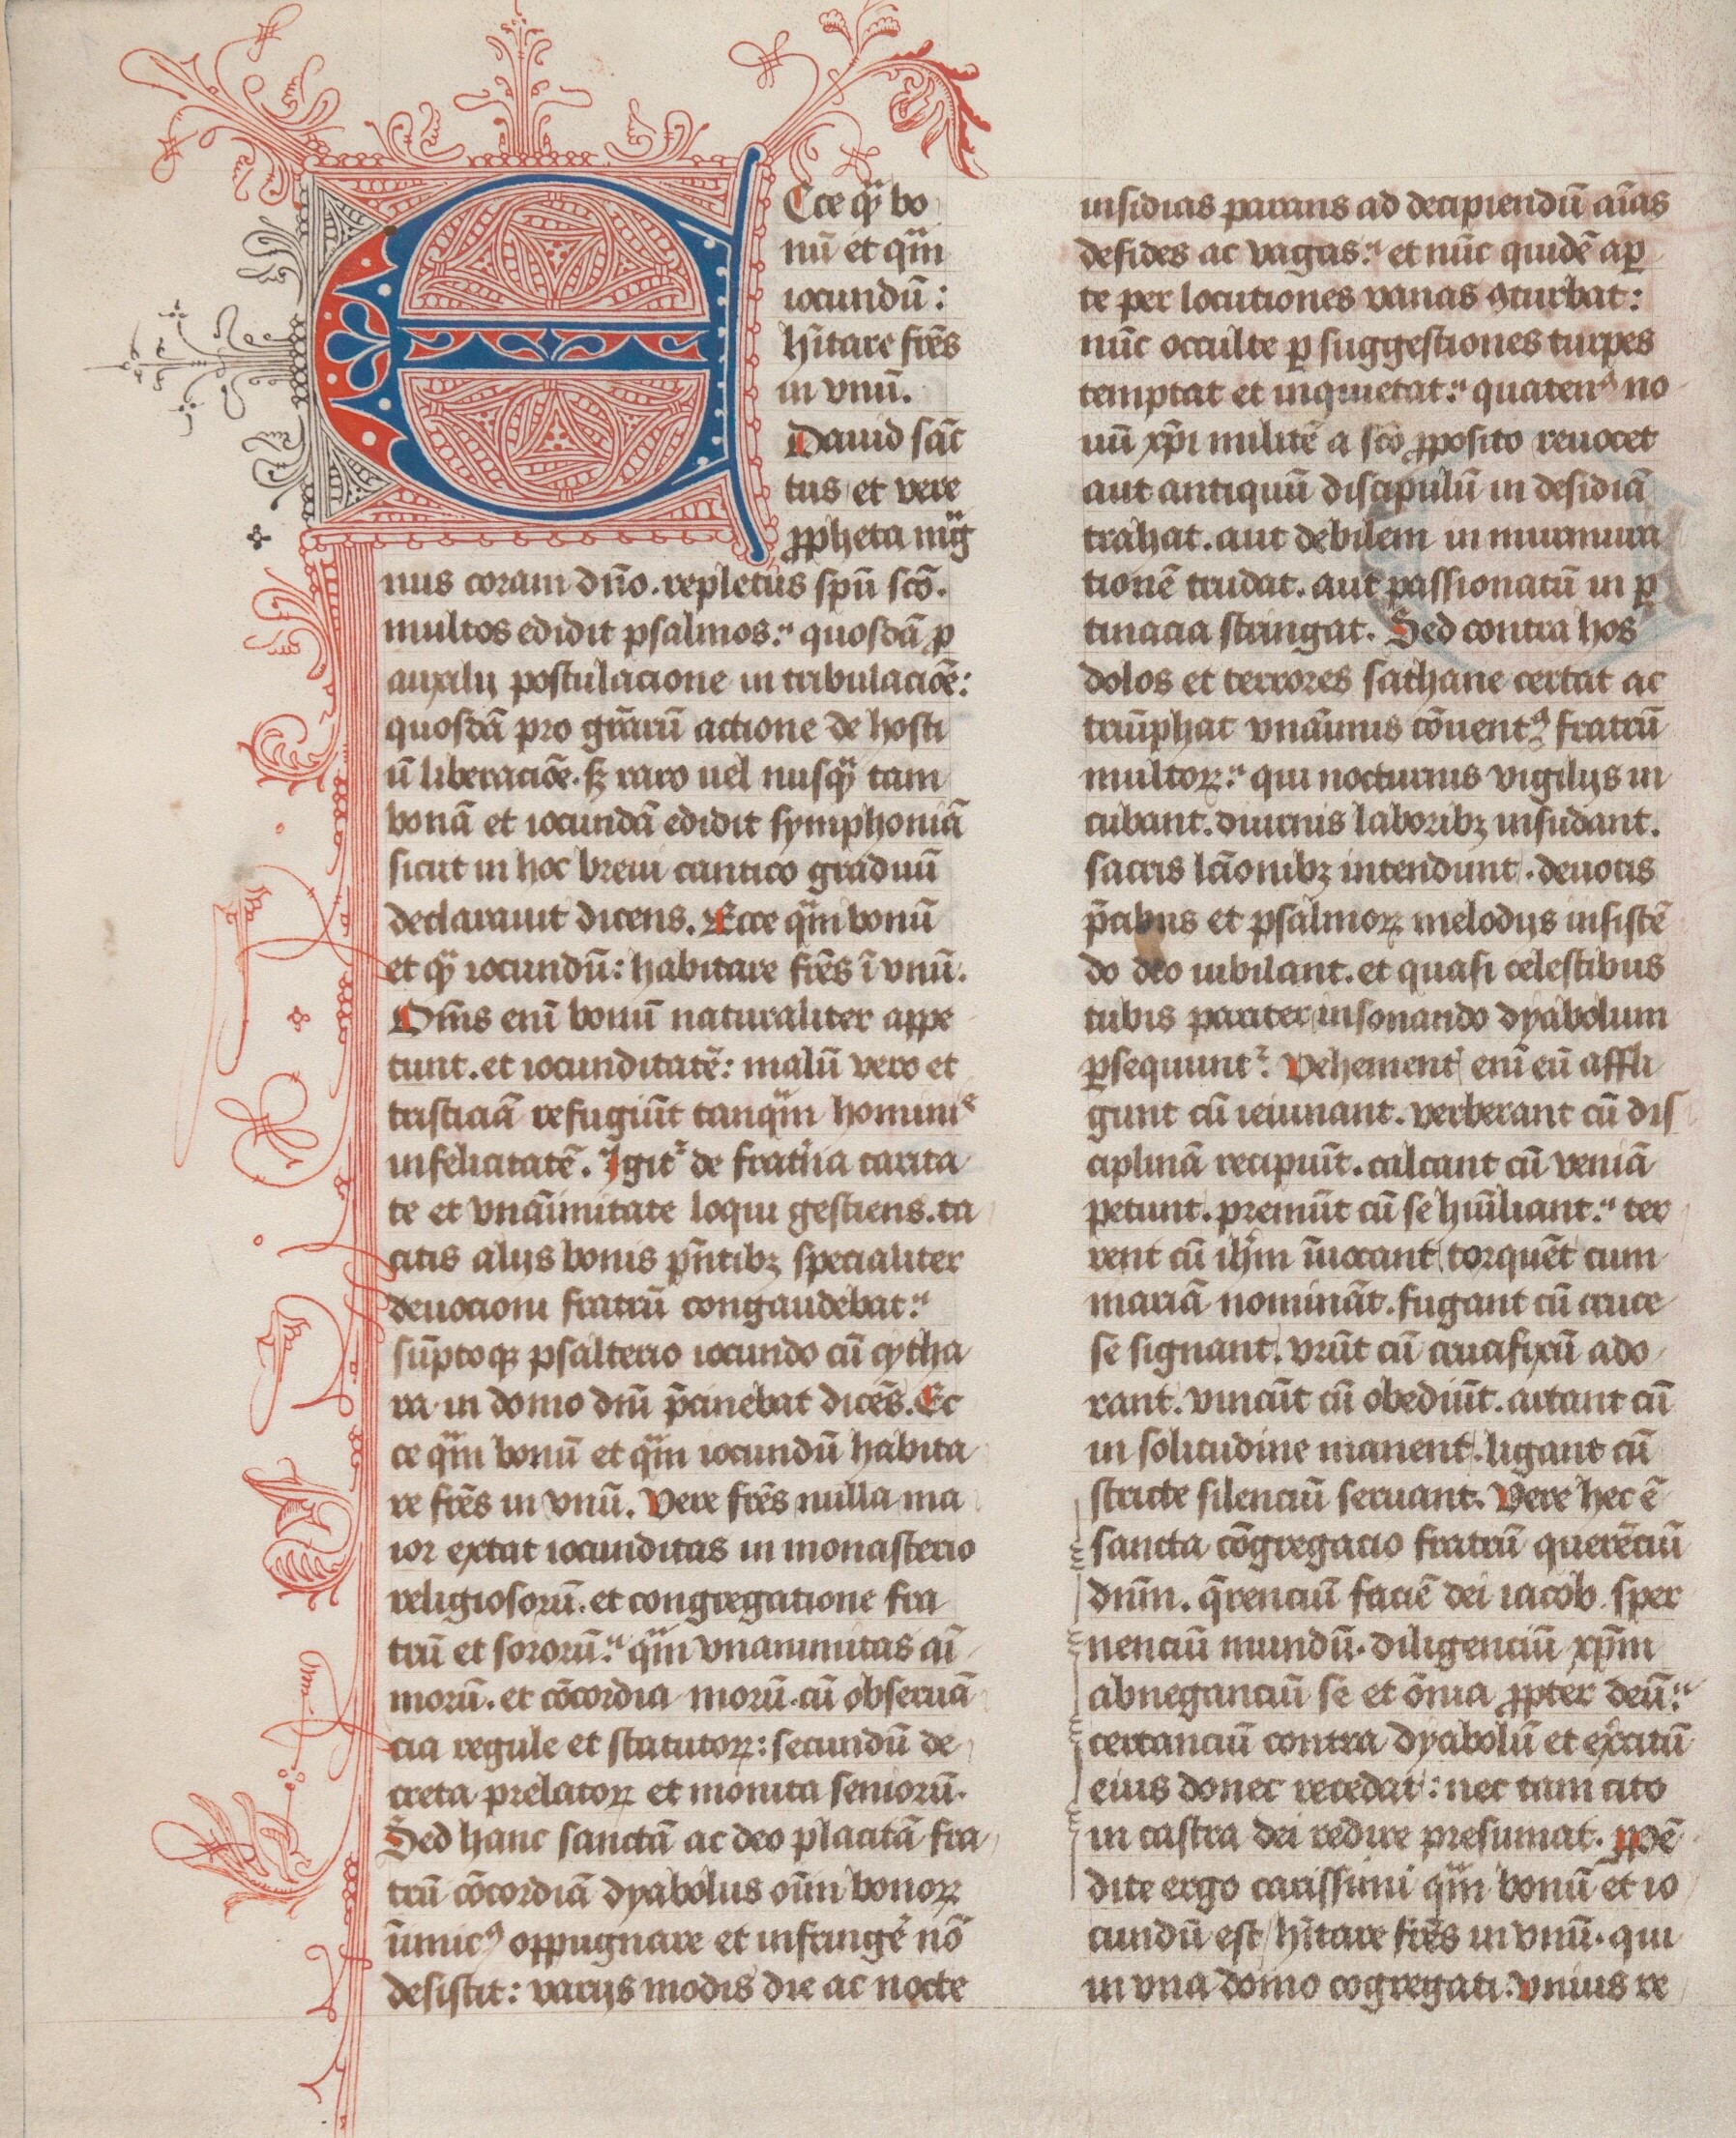 Ecce qͣ bo
nū et qͣm
iocundū:
hītare frēs
in vnū.
Dauid sāc
tus et vere
ꝓpheta mͣg
nus coram dn̄o. repletus spū scō.
multos edidit psalmos: quosdā ꝓ
auxilij postulacione in tribulaciōe:
quosdā pro gr̄arū actione de hosti
ū liberaciōe. sꝫ raro uel nusqͣ tam
bonā et iocundā edidit symphoniā
sicut in hoc breui cantico graduū
declarauit dicens. Ecce qͣm bonū
et qͣ iocundū: habitare frēs ī vnū.
Om̄s enī bonū naturaliter appe
tunt. et iocunditatē: malū vero et
tristiciā refugiūt tanqͣm homini
infelicitatē. Igitᷣ de frat̓na carita
te et vnāimitate loqui gestiens. ta
citis alijs bonis pn̄tibꝫ specialiter
deuocioni fratrū congaudebat:
sūptoqꝫ psalterio iocundo cū cytha
ra in domo dnī p̄cinebat dicēs. Ec
ce qͣm bonū et qͣm iocundū habita
re frēs in vnū. Vere frēs nulla ma
ior extat iocunditas in monasterio
religiosorū. et congregatione fra
trū et sororū: qͣm vnanimitas ai
morū. et cōcordia morū. cū obseruā
cia regule et statutoꝝ: secundū de
creta prelatoꝝ et monita seniorū.
Sed hanc sanctā ac deo placitā fra
trū cōcordiā dyabolus oīm bonoꝝ
īimicꝰ oppugnare et infringe̓ nō
desistit: varijs modis die ac nocte
insidias parans ad decipiendū aīas
desides ac vagas: et nūc quidē aꝑ
te per locutiones vanas ꝯturbat:
nūc occulte ꝑ suggestiones turpes
temptat et inquietat: quatenꝰ no
uū xp̄i militē a scō ꝓposito reuocet
aut antiquū discipulū in desidiā
trahat. aut debilem in murmura
tionē trudat. aut passionatū in ꝑ
tinacia stringat. Sed contra hos
dolos et terrores sathane certat ac
triūphat vnāimis cōuentꝰ fratrū
multoꝝ: qui nocturnis vigilijs in
cubant. diurnis laboribꝫ insudant.
sacris lc̄ionibꝫ intendunt. deuotis
p̄cibus et psalmoꝝ melodijs insistē
do deo iubilant. et quasi celestibus
tubis pariter insonando dyabolum
ꝑsequuntᷣ. Vehement̓ enī eū affli
gunt cū ieiunant. verberant cū dis
ciplinā recipiūt. calcant cū veniā
petunt. premūt cū se hūiliant: ter
rent cū ihm̄ īuocant torquēt cum
mariā nomināt. fugant cū cruce
se signant. vrūt cū crucifixū ado
rant. vinciūt cū obediūt. artant cū
in solitudine manent. ligant cū
stricte silenciū seruant. Vere hec ē
sancta cōgregacio fratrū querēciū
dnm̄. q̄renciū faciē dei iacob. sper
nenciū mundū. diligenciū xp̄m
abneganciū se et om̄ia ꝓpter deū:
certanciū contra dyabolū et exc̓itū
eius donec recedat: nec tam cito
in castra dei redire presumat. ꝓdē
dite ergo carissimi qͣm bonū et io
cundū est hītare frēs in vnū. qui
in vna domo cōgregati. vnius re